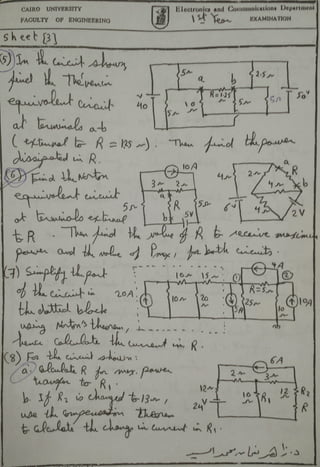 CAIRO UNIVERSITY
FACULTY OF ENGINEERING
Electronics and Communications Department
1st Year EXAMINATION
Sheet [3]
(5) In the circuit shown,
find the Thevenin
equivalent circuit
at terminals a-b
(external to R = 135 Ω). Then find the power
dissipated in R.
5Ω a b 2.5Ω
V 40 5Ω 10 R=135Ω 5Ω 5Ω 50V
(6) Find the Norton
equivalent circuit
at terminals external
to R. Then find the value of R to receive maximum
power and the value of Pmax, for both circuits.
10A
3Ω 2Ω
5Ω a R 5Ω
b 5V
4Ω 2Ω a R
4Ω b
6V 4Ω 2V
(7) Simplify the part
of the circuit in
the dotted block
using Norton's theorem,
hence calculate the current in R.
4A
10Ω 15Ω 1 2
20A 10Ω 20Ω 25Ω R=5Ω 10Ω 19A
(8) For the circuit shown:
a. Calculate R for max. power
transfer to R1.
b. If R2 is changed to 13Ω,
use the compensation theorem
to calculate the change in current in R1.
6A
2Ω 3Ω
12Ω 10Ω R1 12Ω R2
24V R